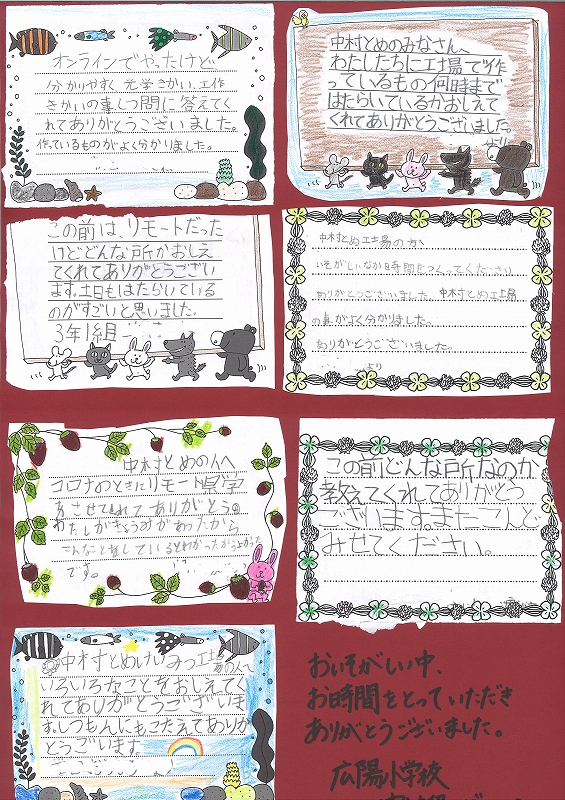 オンラインでやったけど
分かりやすく、光学きかい、工作
きかいの事しつ問に答えてく
れてありがとうございました。
作っているものがよく分かりました。
中村とめのみなさんへ
わたしたちに工場で作
っているもの何時まで
はたらいているかおしえて
くれてありがとうございました。
より
この前は、リモートだった
けどどんな所かおしえ
てくれてありがとうござい
ます。土日もはたらいている
のがすごいと思いました。
3年1組
中村とめ工場の方へ
いそがしいなか時間をつくってください
ありがとうございました。中村とめ工場
の事がよく分かりました。
ありがとうございました。
より
中村とめの人へ
コロナのときにリモート見学
をさせてくれてありがとう。
わたしがきょうみがあったから
こんなことをしているとわかったからよかった
です。
この前どんな所なのか
教えてくれてありがとう
ございます。またこんど
みせてください。
中村とめせいみつ工場の人へ
いろいろなことをおしえてく
れてありがとうございま
す。しつもんにもこたえてありが
とうございます。
おいそがしい中、
お時間をとっていただき
ありがとうございました。
広陽小学校